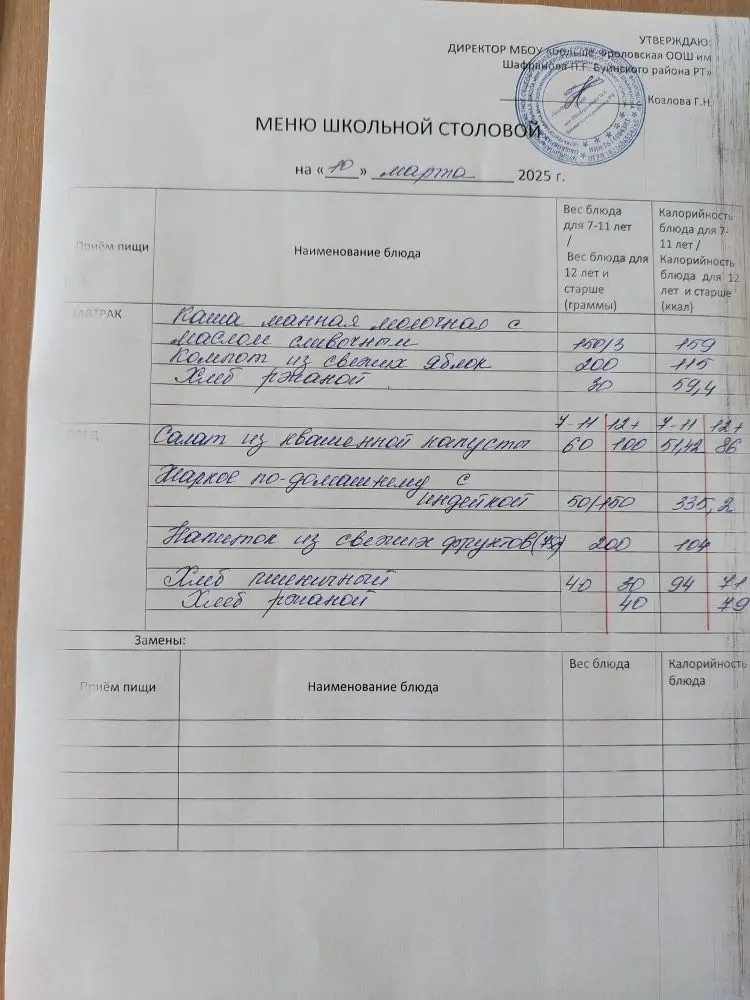 УТВЕРЖДАЮ:
ДИРЕКТОР МБОУ «Больше-Фроловская ООШ им
Шафранова П.Г. Буинского района РТ»
Козлова Г.Н.
МЕНЮ ШКОЛЬНОЙ СТОЛОВОЙ
на «10» марта 2025 г.
Приём пищи Наименование блюда Вес блюда для 7-11 лет / Вес блюда для 12 лет и старше (граммы) Калорийность блюда для 7-11 лет / Калорийность блюда для 12 лет и старше (ккал)
ЗАВТРАК Каша манная молочная с
маслом сливочным 150/3 159
Компот из свежих яблок 200 115
Хлеб ржаной 30 59,4
7-11 12+ 7-11 12+
ОБЕД Салат из квашенной капусты 60 100 51,42 86
Жаркое по-домашнему с
индейкой 50/150 335,2
Напиток из свежих фруктов (75) 200 104
Хлеб пшеничный 40 30 94 71
Хлеб ржаной 40 79
Замены:
Приём пищи Наименование блюда Вес блюда Калорийность блюда